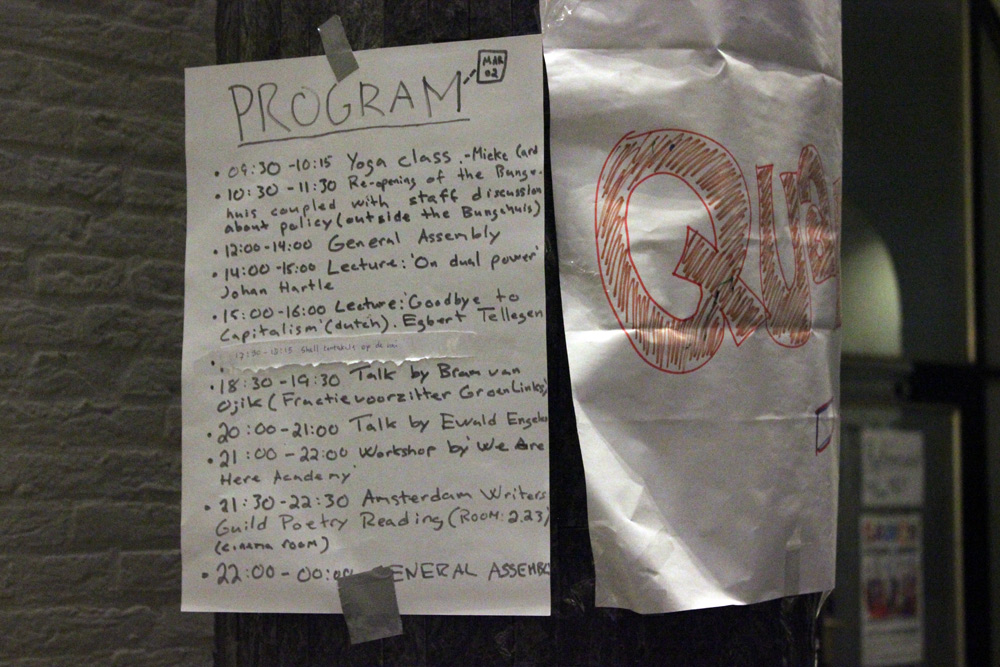 PROGRAM
MAR
02
• 09:30 - 10:15 Yoga class. - Mieke Card
• 10:30 - 11:30 Re-opening of the Bunge-
huis coupled with staff discussion
about policy (outside the Bungehuis)
• 12:00 - 14:00 General Assembly
• 14:00 - 15:00 Lecture: 'On dual power'
Johan Hartle
• 15:00 - 16:00 Lecture: 'Goodbye to
Capitalism' (dutch). Egbert Tellegen
• 18:30 - 19:30 Talk by Bram van
Ojik (Fractievoorzitter GroenLinks)
• 20:00 - 21:00 Talk by Ewald Engele
• 21:00 - 22:00 Workshop by 'We Are
Here Academy
• 21:30 - 22:30 Amsterdam Writers
Guild Poetry Reading (ROOM: 2.23)
(cinema room)
• 22:00 - 00:00 ENERAL ASSEMBL
QUA